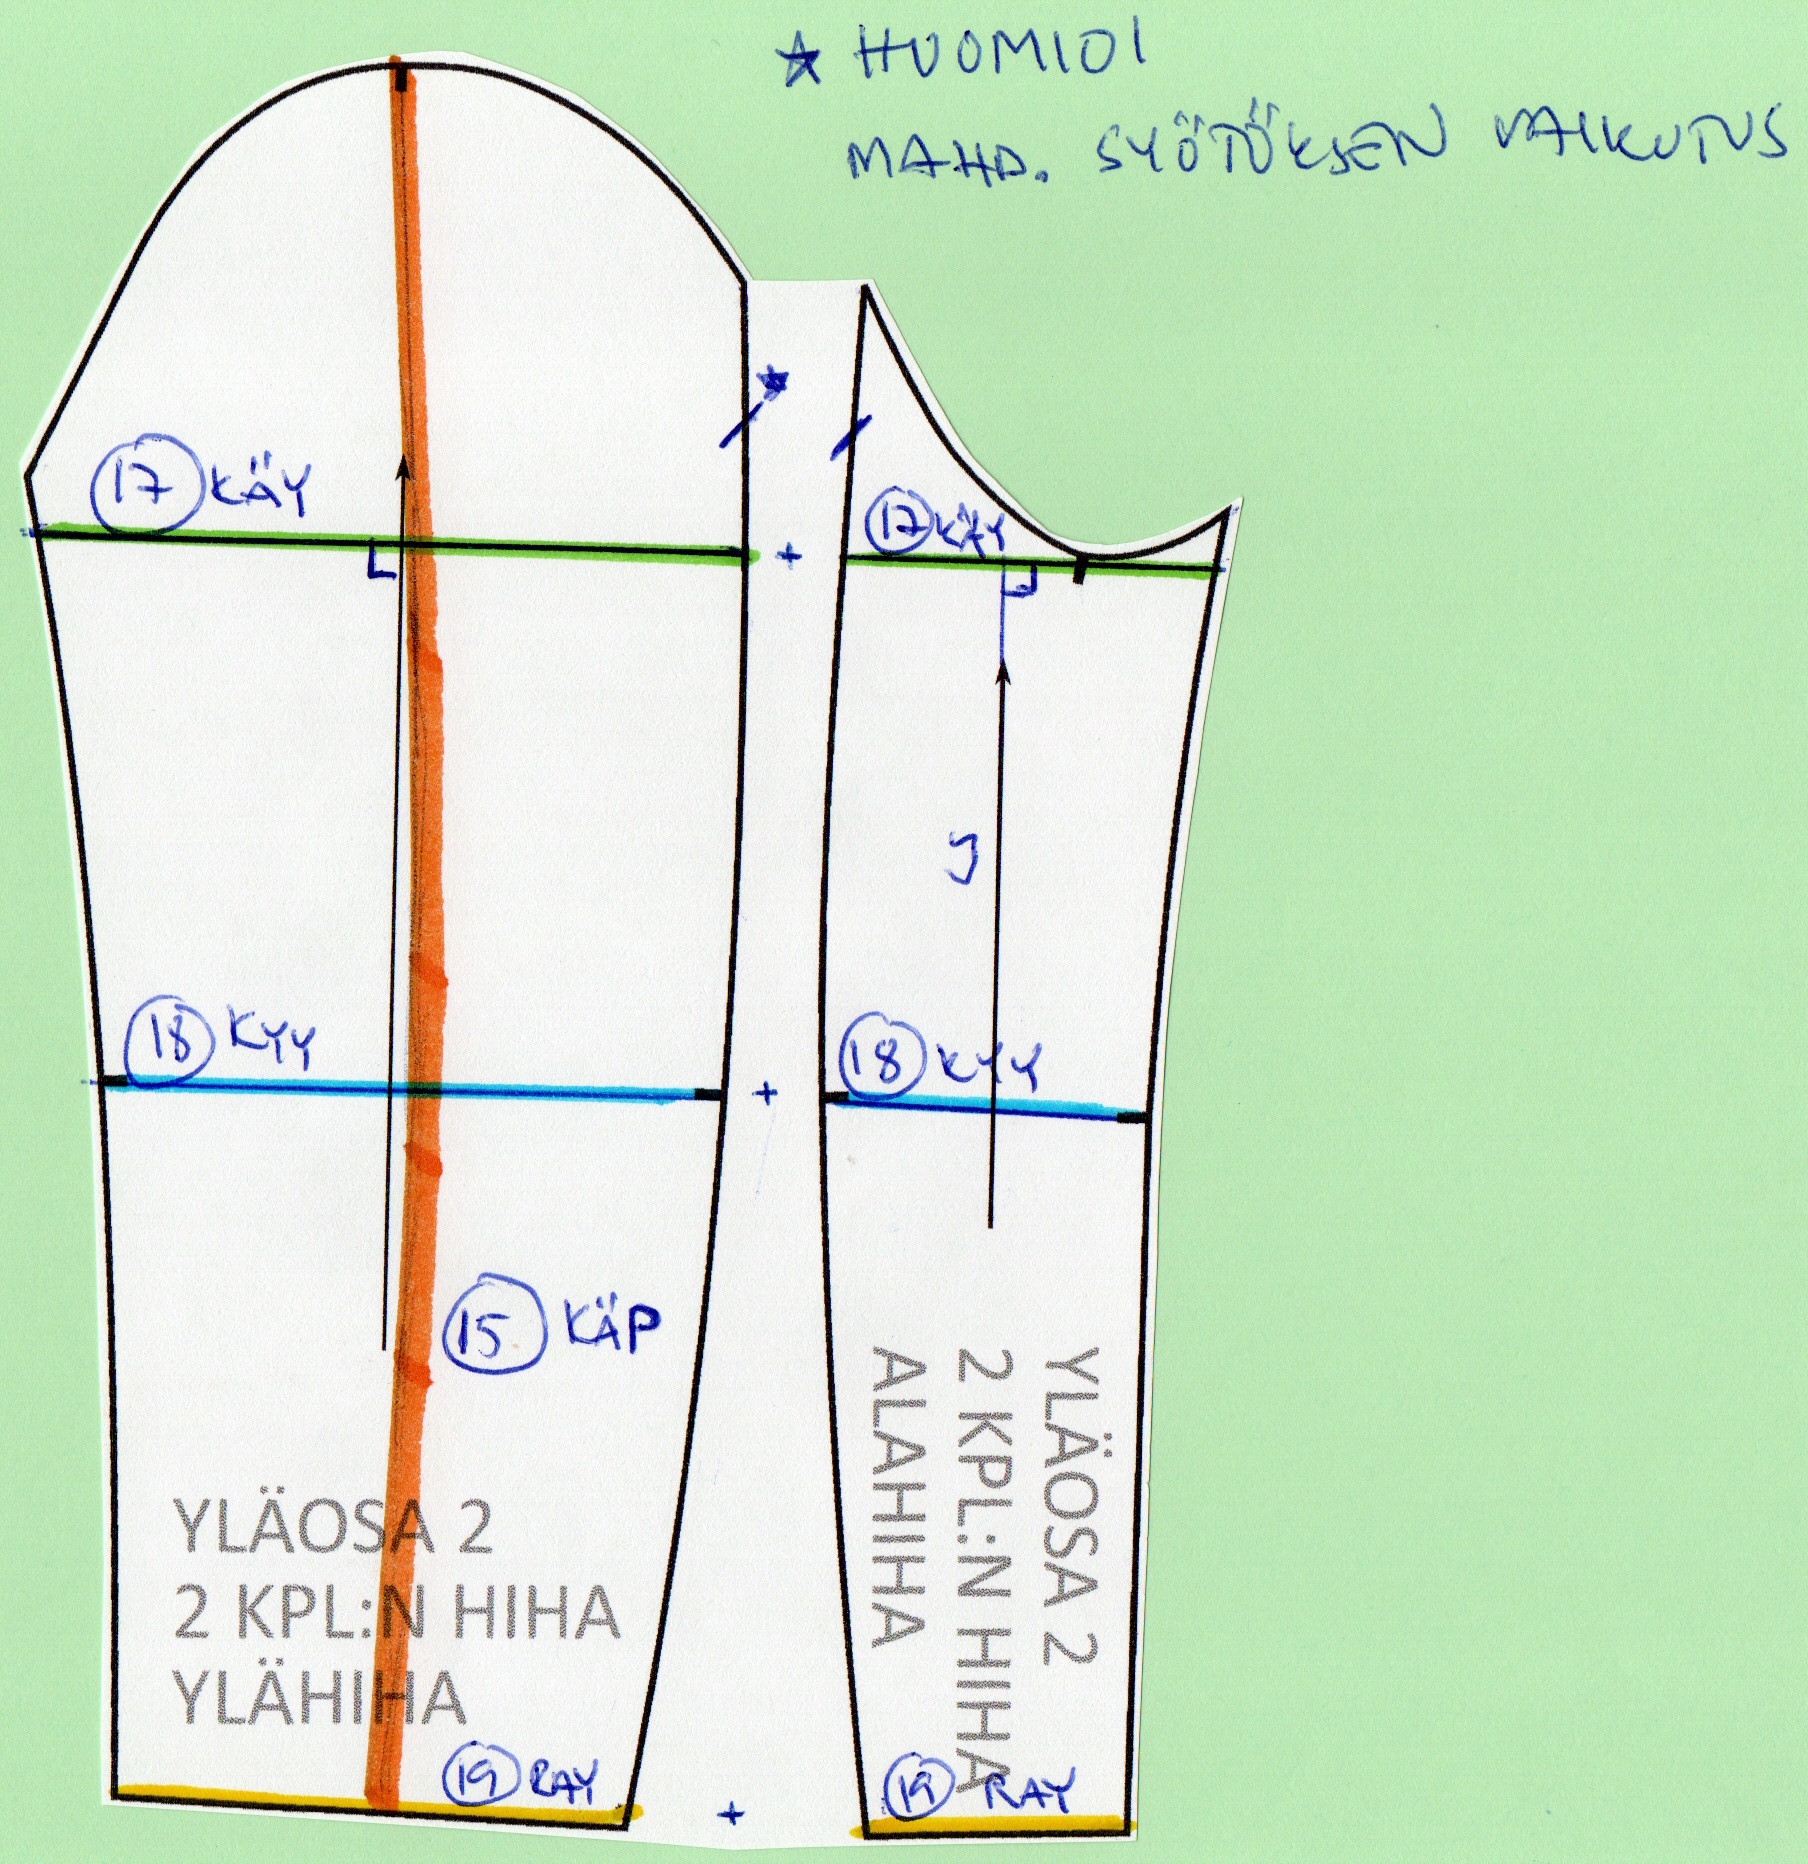 ★ HUOMIOI
MAHD. SYÖTÖKSEN VAIKUTUS
17 KÄY
+
17 KÄY
J
18 KYY
+
18 KYY
15 KÄP
YLÄOSA 2
2 KPL:N HIHA
YLÄHIHA
YLÄOSA 2
2 KPL:N HIHA
ALAHIHA
19 RAY
+
19 RAY